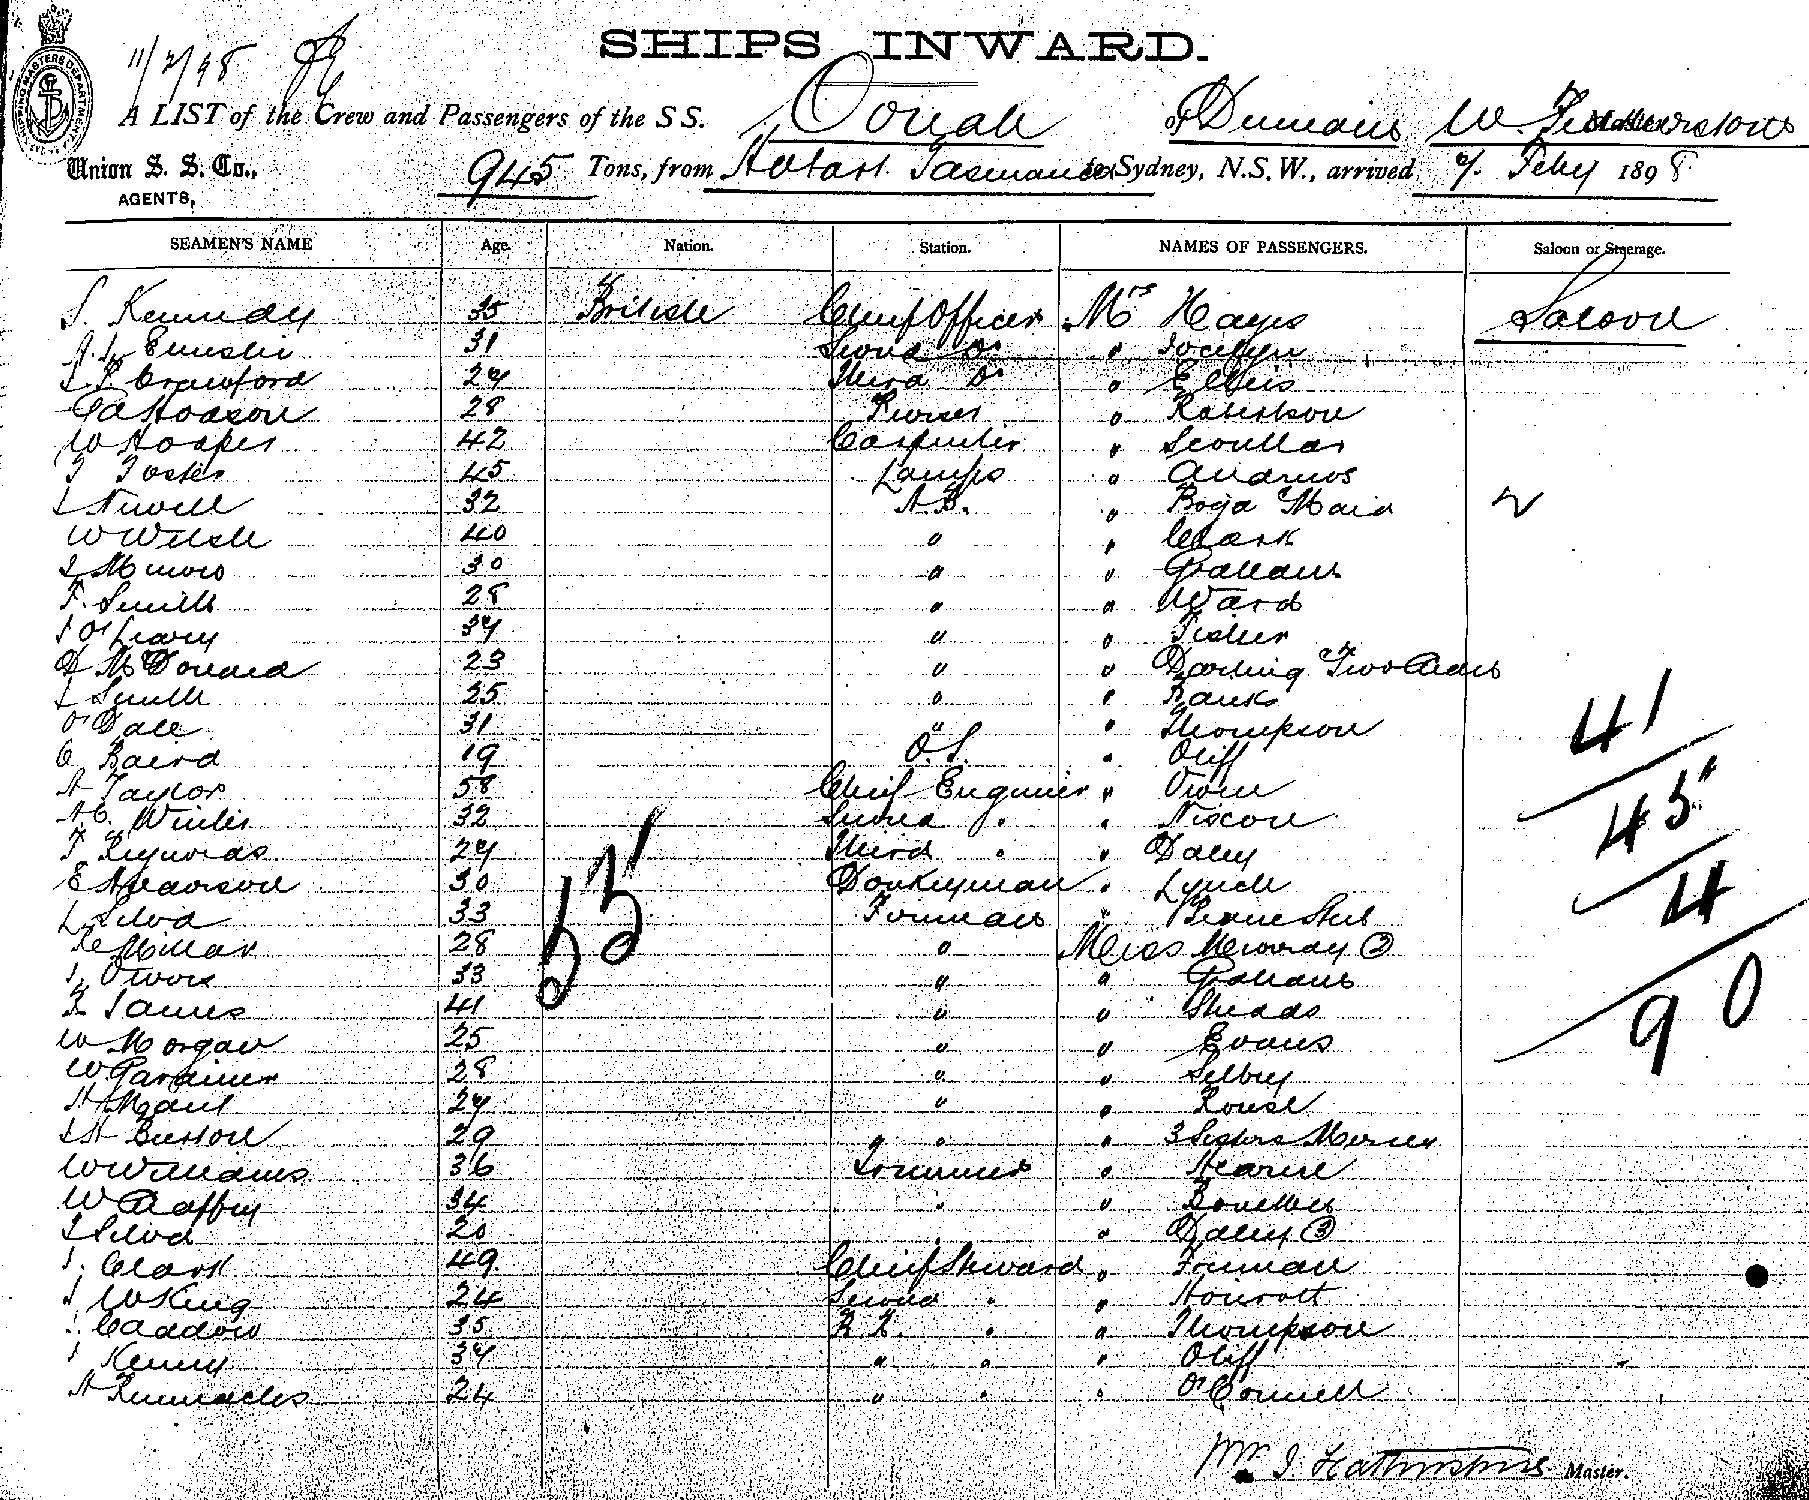 SHIPS INWARD.
11/2/98
A LIST of the Crew and Passengers of the S S. Oonah of Dunedin W.
Union S. S. Co., 945 Tons, from Hobart Tasmania to Sydney, N.S.W., arrived 9/. Feby 1898
AGENTS,
SEAMEN'S NAME Age. Nation. Station. NAMES OF PASSENGERS. Saloon or Steerage.
S. Kennedy 35 British Chief Officer Mrs Hayes Saloon
31 Second Do " Jocelyn
Crawford 29 Third Do " Ellis
Hodson 28 Purser " Robertson
W Hooper 42 Carpenter " Scoullar
T Foster 45 Lamps " Andrews
J Newell 32 A.B. " Boya Maid 2
W Welsh 40 " " Clark
J Munro 30 " " Grahams
F. Smith 28 " " Ward
J O'Leary 39 " " Fisher
D McDonald 23 " " Darling Two
J Smith 25 " " Banks
O' Dale 31 " " Thompson
C Baird 19 O.S. " Oliff
A Taylor 58 Chief Engineer " Owen
A C. Winter 32 Second " " Nixon
F Reynolds 29 Third " " Daley
E A Pearson 30 Donkeyman " Lynch
L Silva 33 Foreman "
Millar 28 " Miss Murray (2)
J. Owens 33 " " Grahams
James 41 " " Shedds
W Morgan 25 " " Evans
W Gardiner 28 " " Selby
H 29 " " Rouse
J H Burton 29 " " " 3 Sisters Mercer
W Williams 36 Trimmer " Hearne
W Caffrey 34 " "
J Silva 20 " " Daley (3)
J. Clark 49 Chief Steward " Freeman
J W King 24 Second " "
J. Caddow 35 F. R. " " Thompson
J Kenny 39 " " " Oliff
A Runnacles 24 " " " O'Connell
35
41
45
4
90
Master.